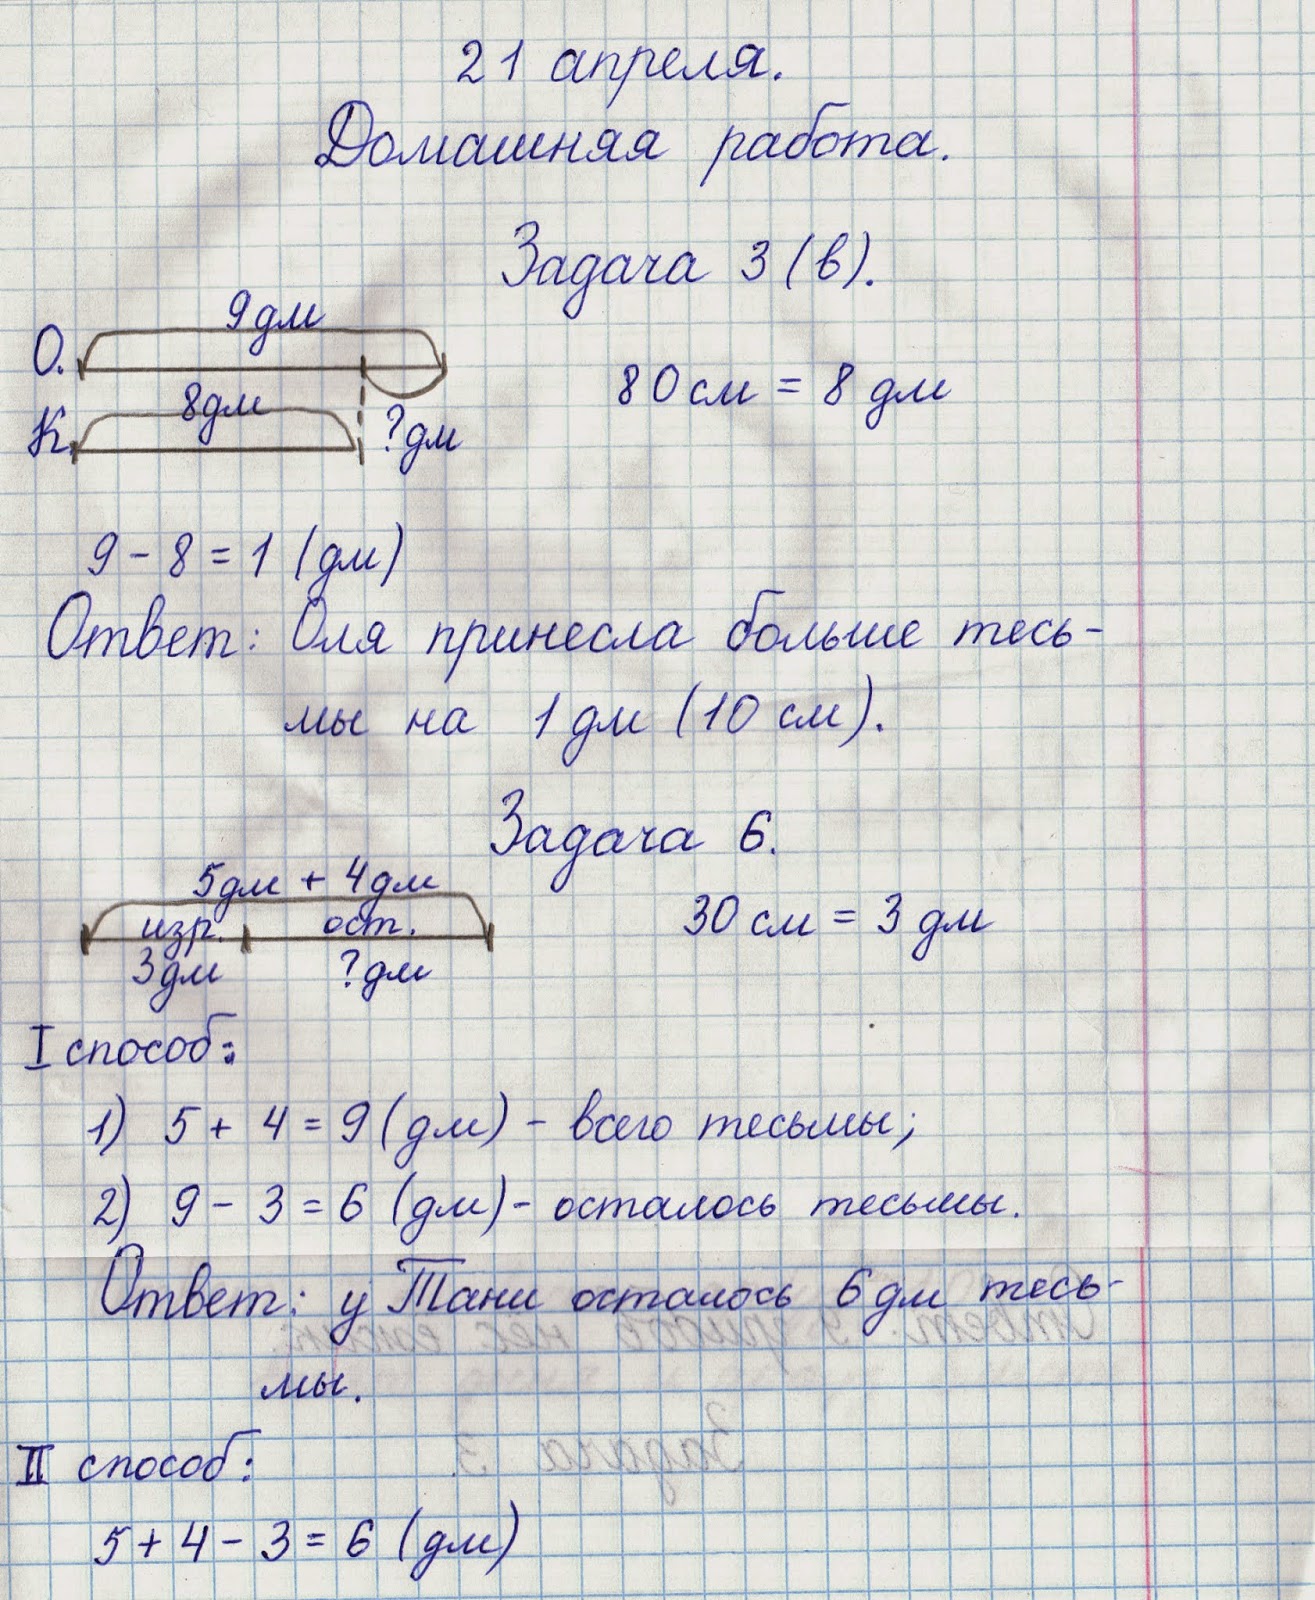 21 апреля.
Домашняя работа.
Задача 3 (в).
9 дм
О.
8 дм
80 см = 8 дм
К.
? дм
9 - 8 = 1 (дм)
Ответ: Оля принесла больше тесь-
мы на 1 дм (10 см).
Задача 6.
5 дм + 4 дм
изр. ост.
30 см = 3 дм
3 дм ? дм
I способ:
1) 5 + 4 = 9 (дм) - всего тесьмы;
2) 9 - 3 = 6 (дм) - осталось тесьмы.
Ответ: у Тани осталось 6 дм тесь-
мы.
II способ:
5 + 4 - 3 = 6 (дм)